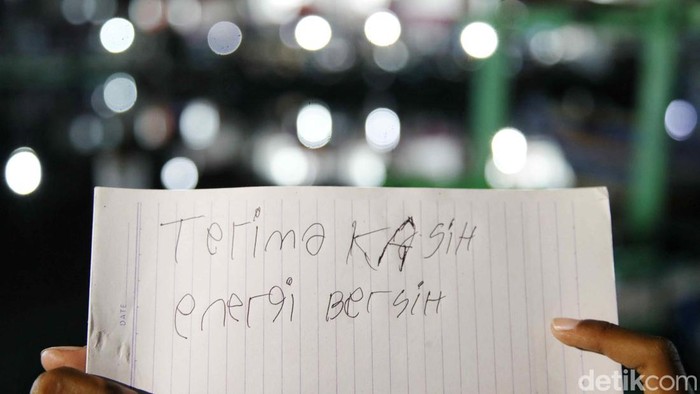 Terima KAsiH
energi BersiH
DATE
detikcom